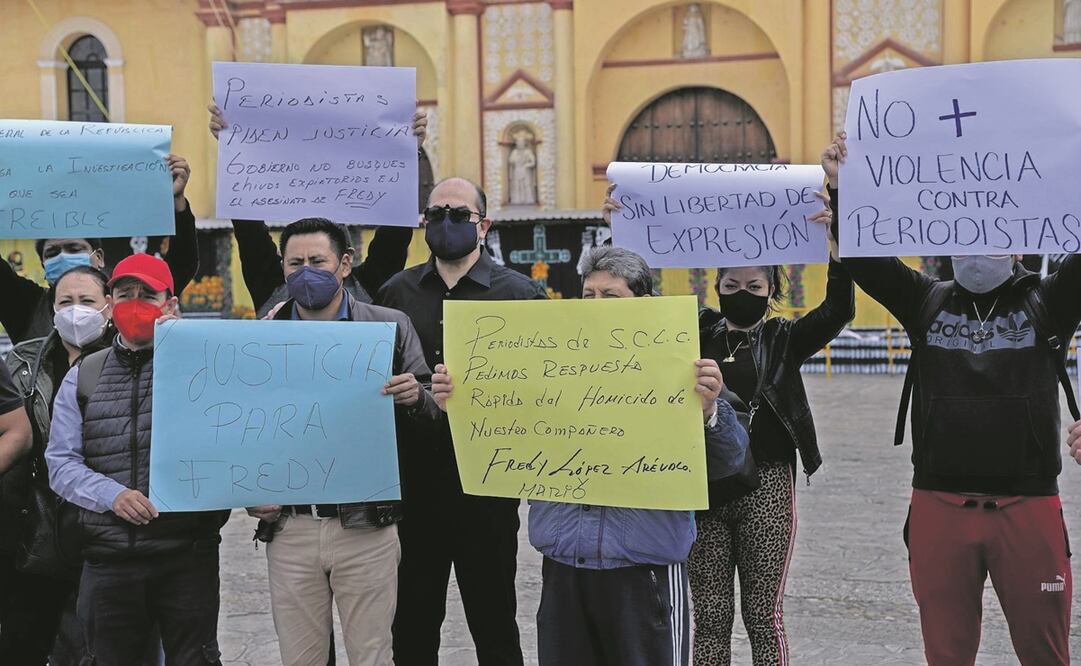 ERAL DE LA REPUBLICA
GA LA INVESTIGACIÓN
QUE SEA
REIBLE
PERIODISTAS
PIDEN JUSTICIA
GOBIERNO NO BUSQUES
CHIVOS EXPIATORIOS EN
EL ASESINATO DE FREDY
DEMOCRACIA
SIN LIBERTAD DE
EXPRESIÓN
NO +
VIOLENCIA
CONTRA
PERIODISTAS
JUSTICIA
PARA
FREDY
PERIODISTAS DE S.C.L.C.
PEDIMOS RESPUESTA
RÁPIDA DEL HOMICIDO DE
NUESTRO COMPAÑERO
FREDY LÓPEZ ARÉVALO.
MARIO
adidas
ORIGINALS
PUMA